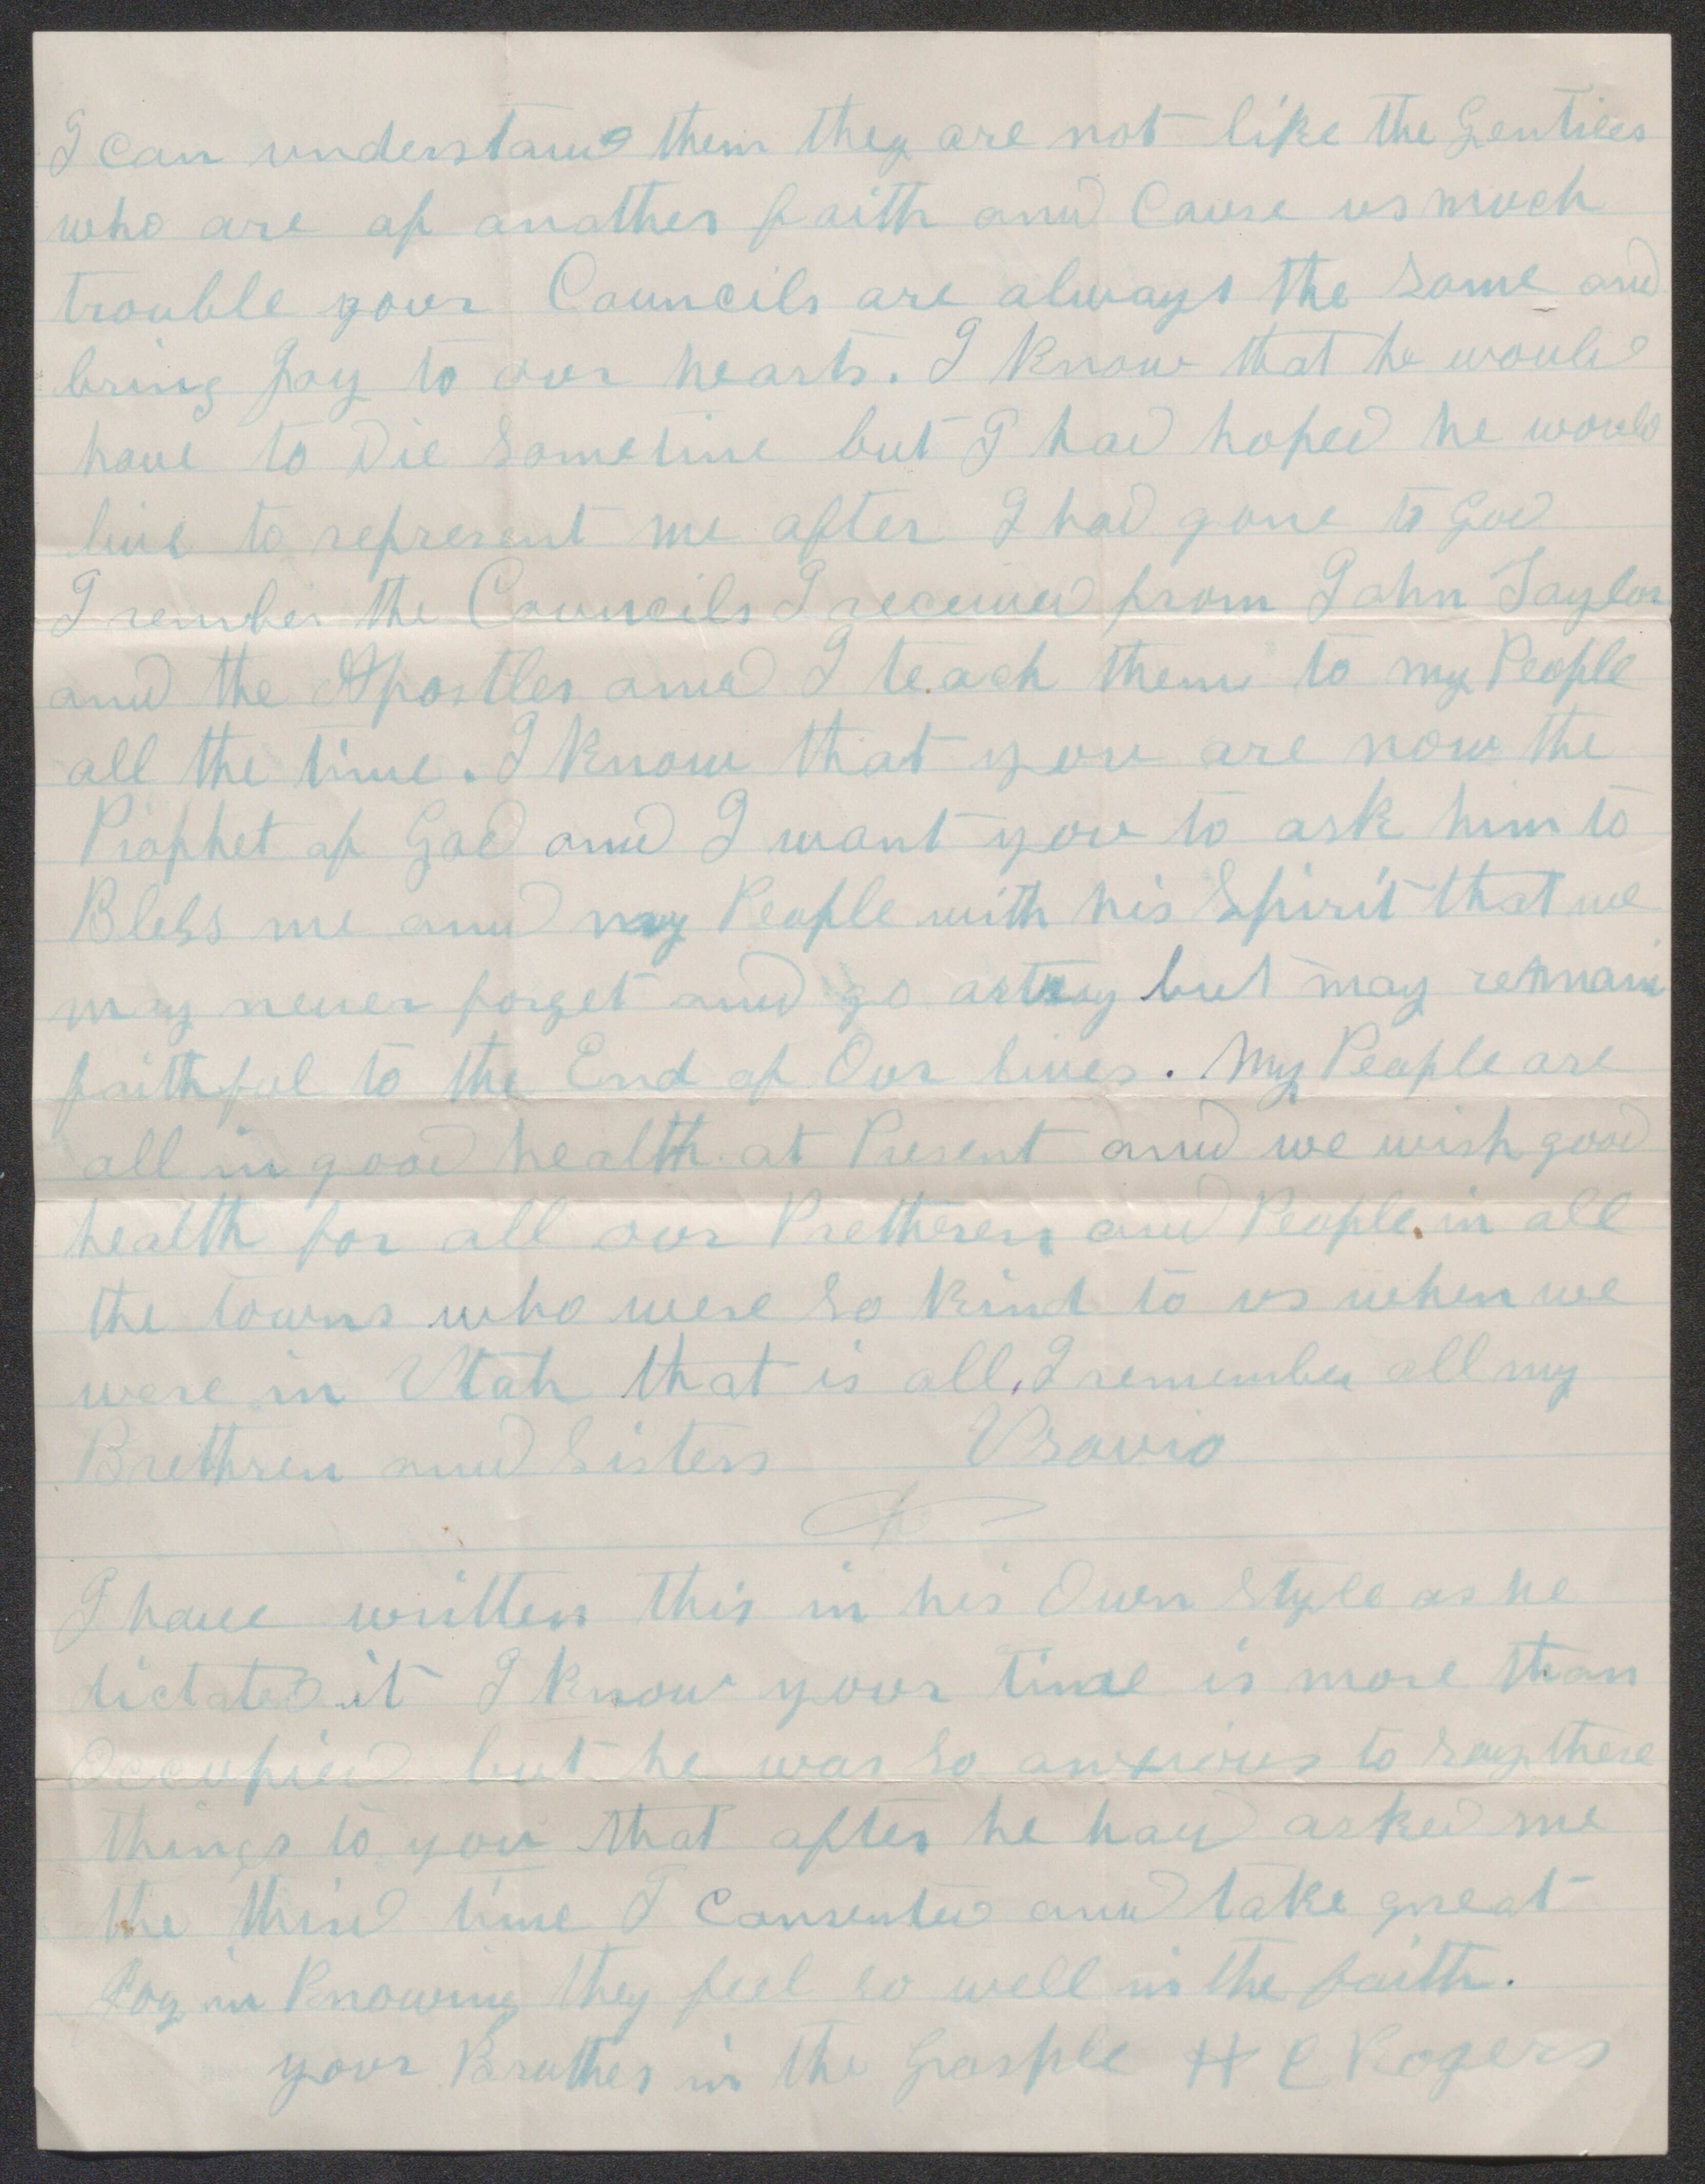 I can understand them they are not like the Gentiles
who are of another faith and Cause us much
trouble your Councils are always the same and
bring Joy to our hearts. I know that he would
have to Die sometime but I had hoped he would
live to represent me after I had gone to God
I rember the Councils I received from John Taylor
and the Apostles and I teach them to my People
all the time. I know that you are now the
Prophet of God and I want you to ask him to
Bless me and my People with his Spirit that we
may never forget and go astray but may remain
faithful to the End of Our lives. My People are
all in good health at Present and we wish good
health for all our Pretheren and People in all
the towns who were so kind to us when we
were in Utah that is all. I remember all my
Brethren and Sisters Vsavio
I have written this in his Own Style as he
dictated it I know your time is more than
Occupied but he was so anxious to say these
things to you that after he had asked me
the third time I Consented and take great
Joy in Knowing they feel so well in the faith.
your Brother in the Gosple H C Rogers